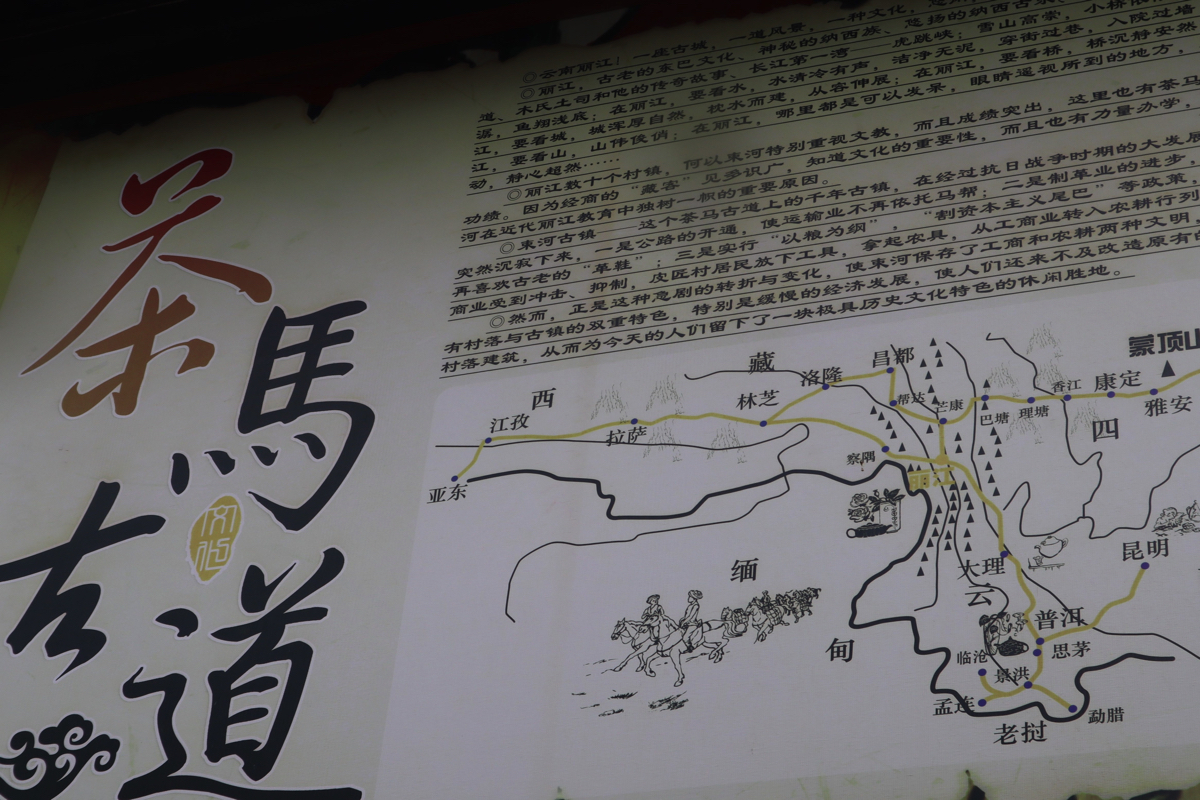 ◎云南丽江！一座古城，一道风景，一种文化，
◎丽江，古老的东巴文化、神秘的纳西族、悠扬的纳西古
道、木氏土司和他的传奇故事、长江第一湾——虎跳峡；雪山高崇，小桥
潺，鱼翔浅底；在丽江，要看水，水清冷有声，洁净无泥，穿街过巷，入院过墙
江，要看城，城浑厚自然，枕水而建，从容伸展；在丽江，要看桥，桥沉静安然
江，要看山，山伟俊俏；在丽江，哪里都是可以发呆，眼睛遥视所到的地方，
动，静心超然……
◎丽江数十个村镇，何以束河特别重视文教，而且成绩突出，这里也有茶马
功绩。因为经商的“藏客”见多识广，知道文化的重要性，而且也有力量办学，
河在近代丽江教育中独树一帜的重要原因。
◎束河古镇——这个茶马古道上的千年古镇，在经过抗日战争时期的大发展
突然沉寂下来，一是公路的开通，使运输业不再依托马帮；二是制革业的进步，
再喜欢古老的“革鞋”；三是实行“以粮为纲”，“割资本主义尾巴”等政策，
商业受到冲击、抑制，皮匠村居民放下工具，拿起农具，从工商业转入农耕行列
◎然而，正是这种悲剧的转折与变化，使束河保存了工商和农耕两种文明
有村落与古镇的双重特色，特别是缓慢的经济发展，使人们还来不及改造原有的
村落建筑，从而为今天的人们留下了一块极具历史文化特色的休闲胜地。
茶
馬
古
道
西
藏
昌都
洛隆
蒙顶山
江孜
拉萨
林芝
帮达
芒康
巴塘
理塘
香江
康定
雅安
四
亚东
察隅
丽江
缅
大理
昆明
云
甸
普洱
思茅
临沧
景洪
孟连
勐腊
老挝